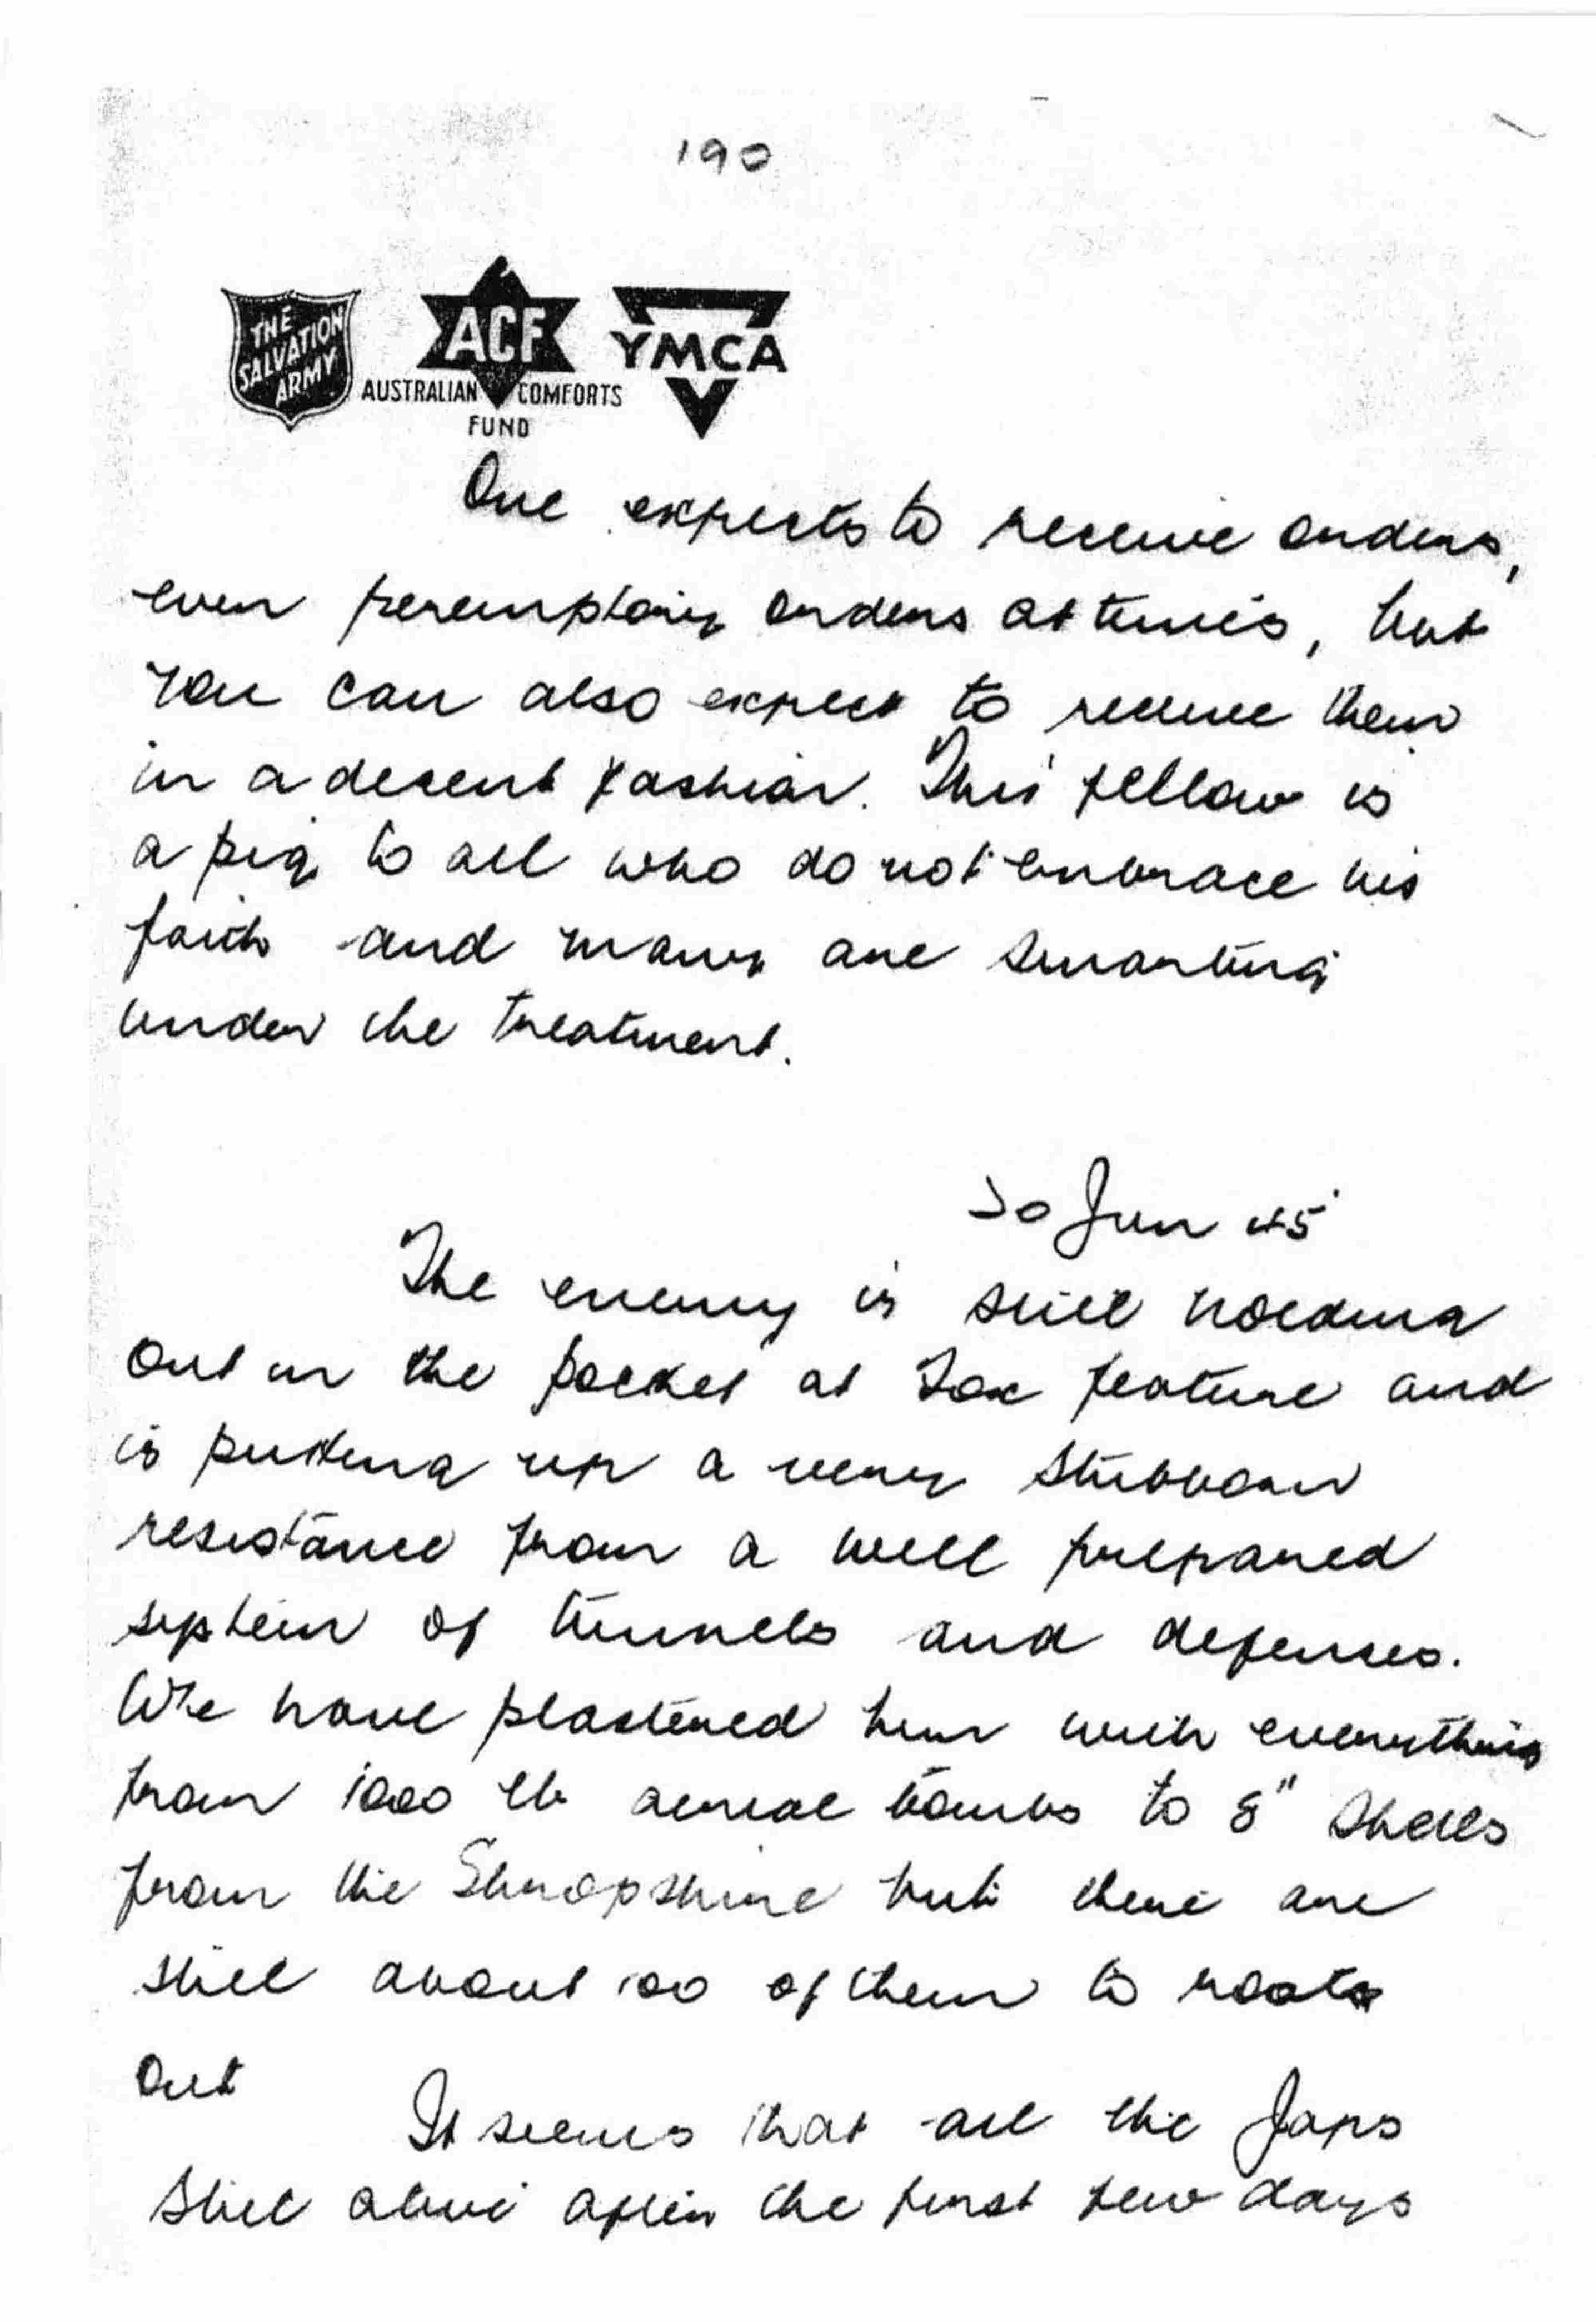 190
THE
SALVATION
ARMY
ACF
AUSTRALIAN COMFORTS
FUND
YMCA
One expects to receive orders,
even peremptory orders at times, but
you can also expect to receive them
in a decent fashion. This fellow is
a pig to all who do not embrace his
faith and many are smarting
under the treatment.
20 Jun 45
The enemy is still holding
out in the pocket at Fox feature and
is putting up a very stubborn
resistance from a well prepared
system of tunnels and defenses.
We have plastered him with everything
from 1000 lb aerial bombs to 8" shells
from the Shropshire but there are
still about 100 of them to root
out
It seems that all the Japs
still alive after the first few days